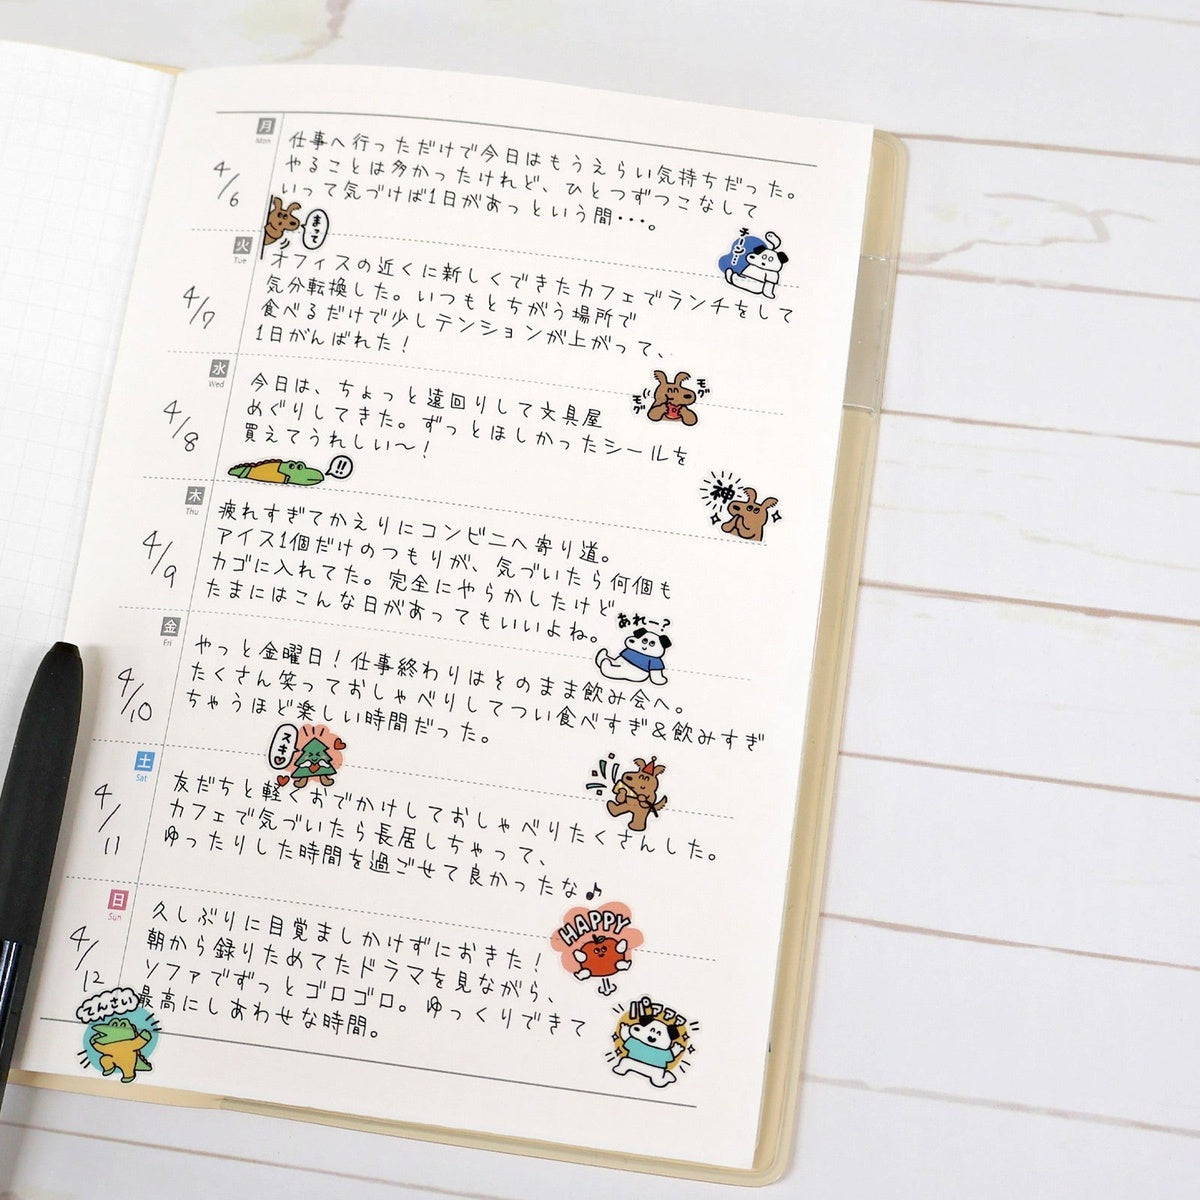 月
Mon
4/6
仕事へ行っただけで今日はもうえらい気持ちだった。
やることは多かったけれど、ひとつずつこなして
いって気づけば1日があっという間・・・。
まって
チーン…
火
Tue
4/7
オフィスの近くに新しくできたカフェでランチをして
気分転換した。いつもとちがう場所で
食べるだけで少しテンションが上がって、
1日がんばれた！
モグ
モグ
水
Wed
4/8
今日は、ちょっと遠回りして文具屋
めぐりしてきた。ずっとほしかったシールを
買えてうれしい〜！
!!
神
木
Thu
4/9
疲れすぎてかえりにコンビニへ寄り道。
アイス1個だけのつもりが、気づいたら何個も
カゴに入れてた。完全にやらかしたけど
たまにはこんな日があってもいいよね。
あれー?
金
Fri
4/10
やっと金曜日！仕事終わりはそのまま飲み会へ。
たくさん笑っておしゃべりしてつい食べすぎ＆飲みすぎ
ちゃうほど楽しい時間だった。
スキ♡
土
Sat
4/11
友だちと軽くおでかけしておしゃべりたくさんした。
カフェで気づいたら長居しちゃって、
ゆったりした時間を過ごせて良かったな♪
HAPPY
日
Sun
4/12
久しぶりに目覚ましかけずにおきた！
朝から録りためてたドラマを見ながら、
ソファでずっとゴロゴロ。ゆっくりできて
最高にしあわせな時間。
てんさい
パァァァ